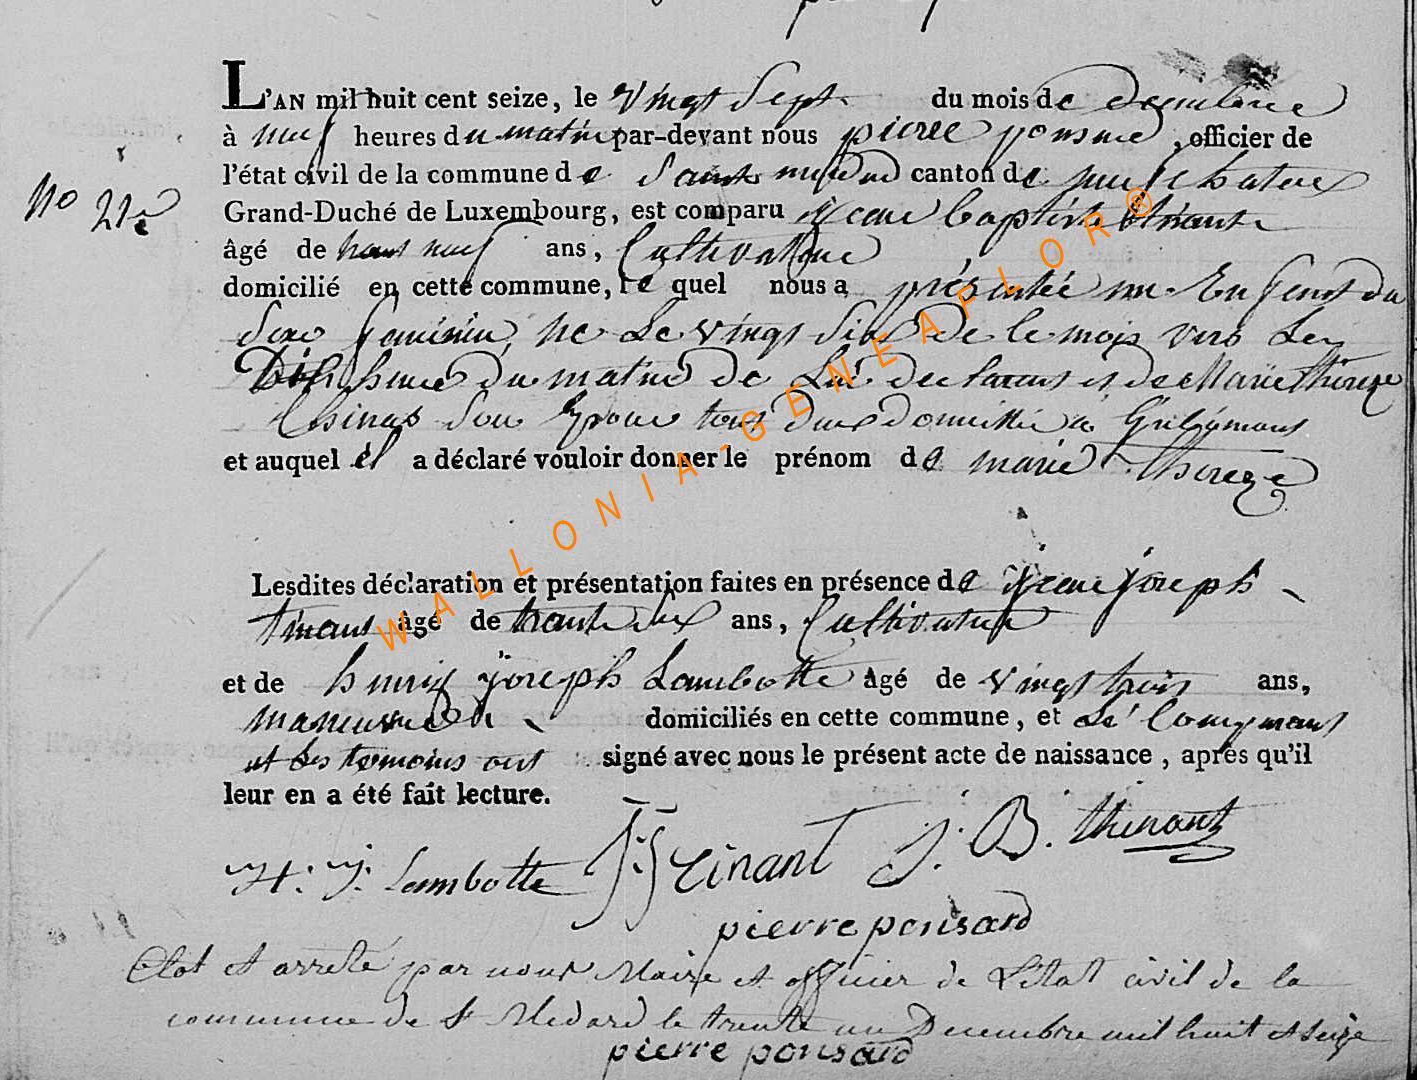 L'AN mil huit cent seize, le vingt Sept du mois de decembre
à neuf heures du matin par-devant nous pierre ponsard, officier de
l'état civil de la commune de Saint medard canton de neufchateau
No 21
Grand-Duché de Luxembourg, est comparu Jean baptiste thinant
âgé de trant neuf ans, Cultivateur
domicilié en cette commune, le quel nous a présentée un Enfent du
Sexe feminin, ne Le vingt Six de le mois vers Les
Dix heure du matin de Lui declarant et de Marie Thereze
Son Epouse tous deux domicillié a Gribomont
et auquel il a déclaré vouloir donner le prénom de marie thereze
Lesdites déclaration et présentation faites en présence de Jean joseph
tinant âgé de trante deux ans, Cultivateur
et de henriy joseph Lambotte âgé de vingt trois ans,
maneuvre domiciliés en cette commune, et Le Comparant
et Les temoins ont signé avec nous le présent acte de naissance, après qu'il
leur en a été fait lecture.
H: J: Lambotte J: J tinant J: B. thinant
pierre ponsard
Clot et arreté par nous Maire et officier de L'Etat civil de la
commune de St Medard le trente un Decembre mil huit et seize
pierre ponsard
WALLONIA-GENEAFLOR®